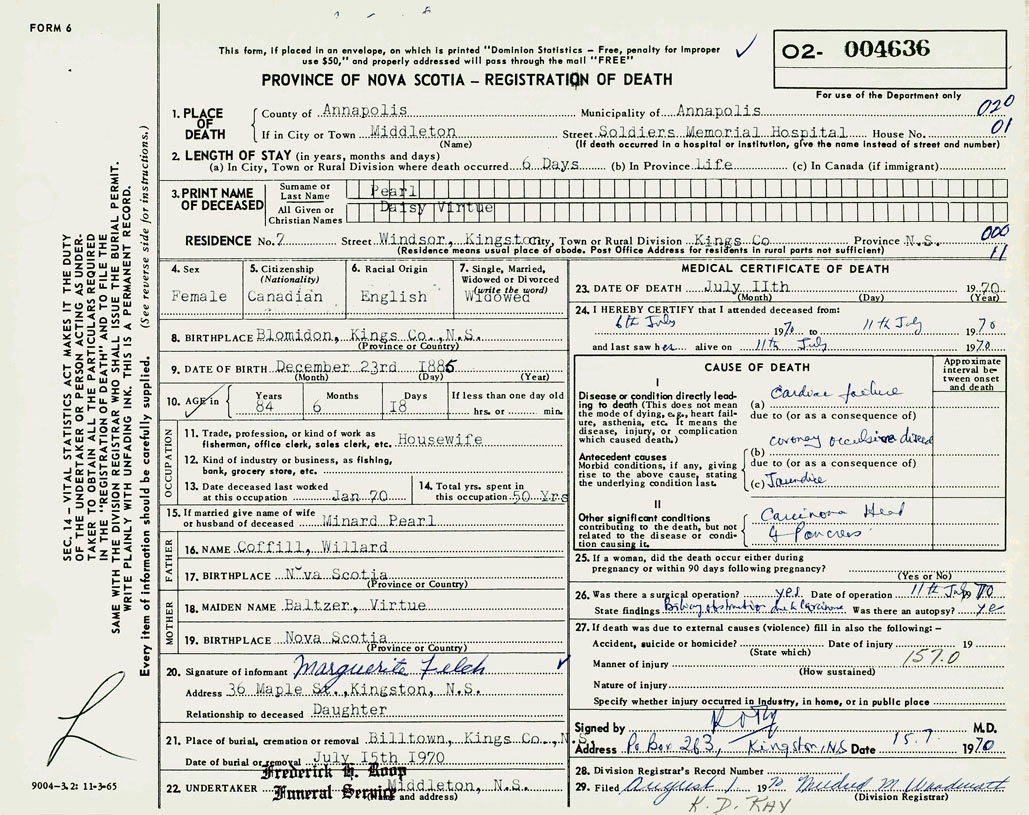 FORM 6
This form, if placed in an envelope, on which is printed "Dominion Statistics – Free, penalty for improper
use $50," and properly addressed will pass through the mail "FREE"
PROVINCE OF NOVA SCOTIA – REGISTRATION OF DEATH
02- 004636
For use of the Department only
1. PLACE OF DEATH
County of Annapolis Municipality of Annapolis 020
If in City or Town Middleton Street Soldiers Memorial Hospital House No. 01
(Name) (If death occurred in a hospital or institution, give the name instead of street and number)
2. LENGTH OF STAY (in years, months and days)
(a) In City, Town or Rural Division where death occurred 6 Days (b) In Province Life (c) In Canada (if immigrant)
3. PRINT NAME OF DECEASED
Surname or Last Name Pearl
All Given or Christian Names Daisy Virtue
RESIDENCE No. 7 Street Windsor, Kingston City, Town or Rural Division Kings Co Province N.S. 000
(Residence means usual place of abode. Post Office Address for residents in rural parts not sufficient) 11
4. Sex Female
5. Citizenship (Nationality) Canadian
6. Racial Origin English
7. Single, Married, Widowed or Divorced (write the word) Widowed
8. BIRTHPLACE Blomidon, Kings Co., N.S.
(Province or Country)
9. DATE OF BIRTH December 23rd 1885
(Month) (Day) (Year)
10. AGE in Years 84 Months 6 Days 18 If less than one day old hrs. or min.
OCCUPATION
11. Trade, profession, or kind of work as
fisherman, office clerk, sales clerk, etc. Housewife
12. Kind of industry or business, as fishing,
bank, grocery store, etc.
13. Date deceased last worked
at this occupation Jan 70
14. Total yrs. spent in
this occupation 50 Yrs
15. If married give name of wife
or husband of deceased Minard Pearl
FATHER
16. NAME Coffill, Willard
17. BIRTHPLACE Nova Scotia
(Province or Country)
MOTHER
18. MAIDEN NAME Baltzer, Virtue
19. BIRTHPLACE Nova Scotia
(Province or Country)
20. Signature of informant Marguerite Felch
Address 36 Maple St., Kingston, N.S.
Relationship to deceased Daughter
21. Place of burial, cremation or removal Billtown, Kings Co., N.S.
Date of burial or removal July 15th 1970
22. UNDERTAKER Frederick H. Roop
Funeral Service Middleton, N.S.
(Name and address)
MEDICAL CERTIFICATE OF DEATH
23. DATE OF DEATH July 11th 1970
(Month) (Day) (Year)
24. I HEREBY CERTIFY that I attended deceased from:
6th July 1970 to 11th July 1970
and last saw her alive on 11th July 1970
CAUSE OF DEATH
Approximate interval between onset and death
I
Disease or condition directly leading to death (This does not mean the mode of dying, e.g., heart failure, asthenia, etc. It means the disease, injury, or complication which caused death.)
(a) Cardiac failure
due to (or as a consequence of)
(b) coronary occulsive disease
Antecedent causes
Morbid conditions, if any, giving rise to the above cause, stating the underlying condition last.
due to (or as a consequence of)
(c) Jaundice
II
Other significant conditions
contributing to the death, but not related to the disease or condition causing it.
Carcinoma Head
of Pancreas
25. If a woman, did the death occur either during
pregnancy or within 90 days following pregnancy?
(Yes or No)
26. Was there a surgical operation? yes. Date of operation 11th July 1970
State findings Biliary obstruction due to carcinoma Was there an autopsy? yes
27. If death was due to external causes (violence) fill in also the following: –
Accident, suicide or homicide? Date of injury 19
(State which) 157.0
Manner of injury
(How sustained)
Nature of injury
Specify whether injury occurred in industry, in home, or in public place
Signed by M.D.
Address Po Box 263, Kingston, NS Date 15.7. 1970
28. Division Registrar's Record Number
29. Filed August 1 1970 Mildred M.
(Division Registrar)
K. D. KAY
SEC. 14 – VITAL STATISTICS ACT MAKES IT THE DUTY
OF THE UNDERTAKER OR PERSON ACTING AS UNDER-
TAKER TO OBTAIN ALL THE PARTICULARS REQUIRED
IN THE "REGISTRATION OF DEATH" AND TO FILE THE
SAME WITH THE DIVISION REGISTRAR WHO SHALL ISSUE THE BURIAL PERMIT.
WRITE PLAINLY WITH UNFADING INK. THIS IS A PERMANENT RECORD.
Every item of information should be carefully supplied. (See reverse side for instructions.)
9004–3.2: 11-3-65